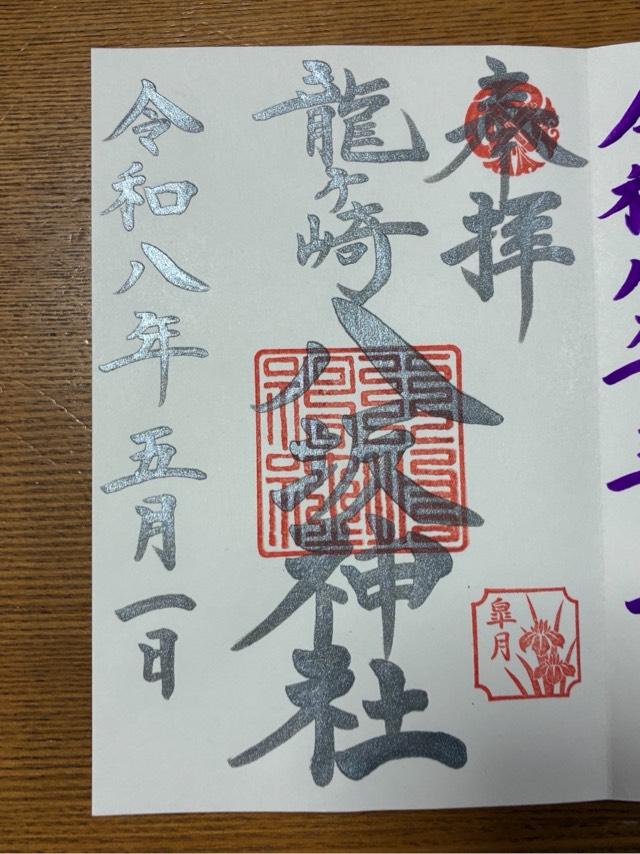 奉拝
龍ヶ崎
八坂神社
皐月
令和八年五月一日